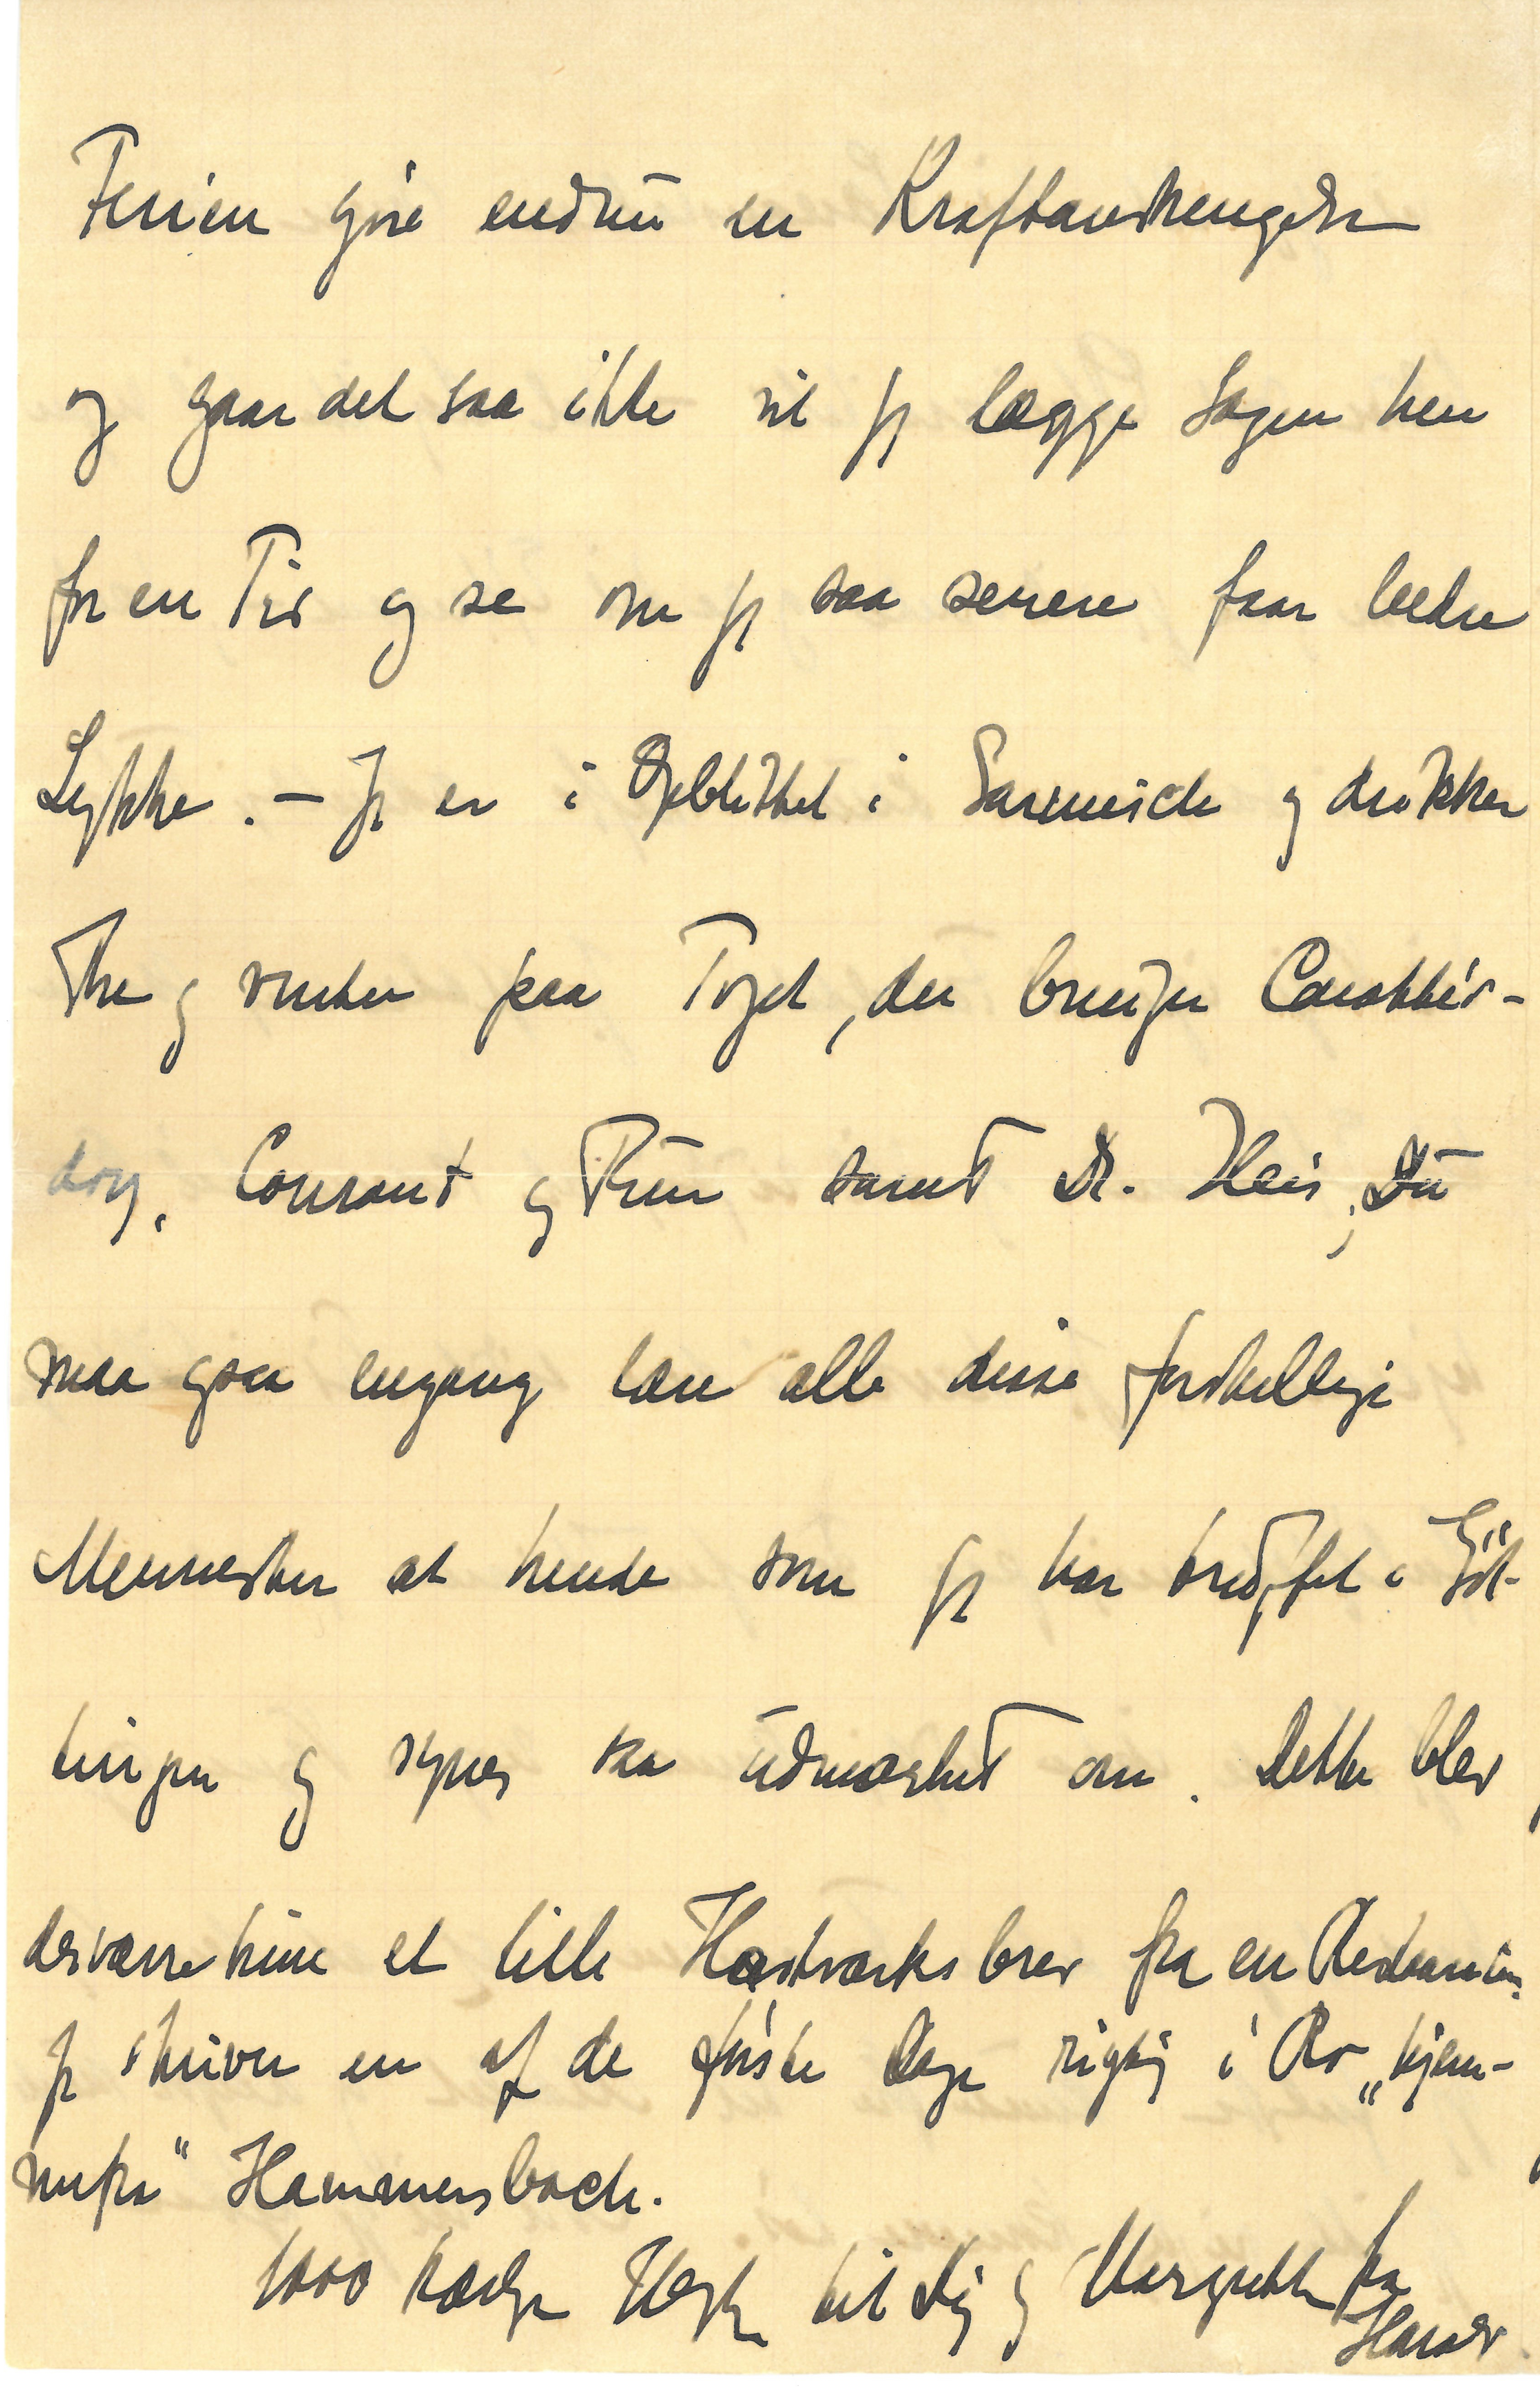 Ferien gøre endnu en Kraftanstrengelse
og gaar det saa ikke vil jeg lægge Sagen hen
for en Tid og se om jeg saa senere faar bedre
Lykke. – Jeg er i Øjeblikket i og drikker
The og venter paa Toget, der bringer Carathéo-
dory, Courant og Frue samt Dr. Hein, Du
maa gaa engang lære alle disse forskellige
Mennesker at kende som jeg har truffet i Göt-
tingen og synes saa udmærket om. Dette blev
desværre kun et lille Hastværksbrev fra en Restauration.
Jeg skriver en af de første Dage rigtig i Ro „hjem-
mefra" Hammersbach.
1000 kærlige Hilsner til Dig og Margrethe fra
Harald.